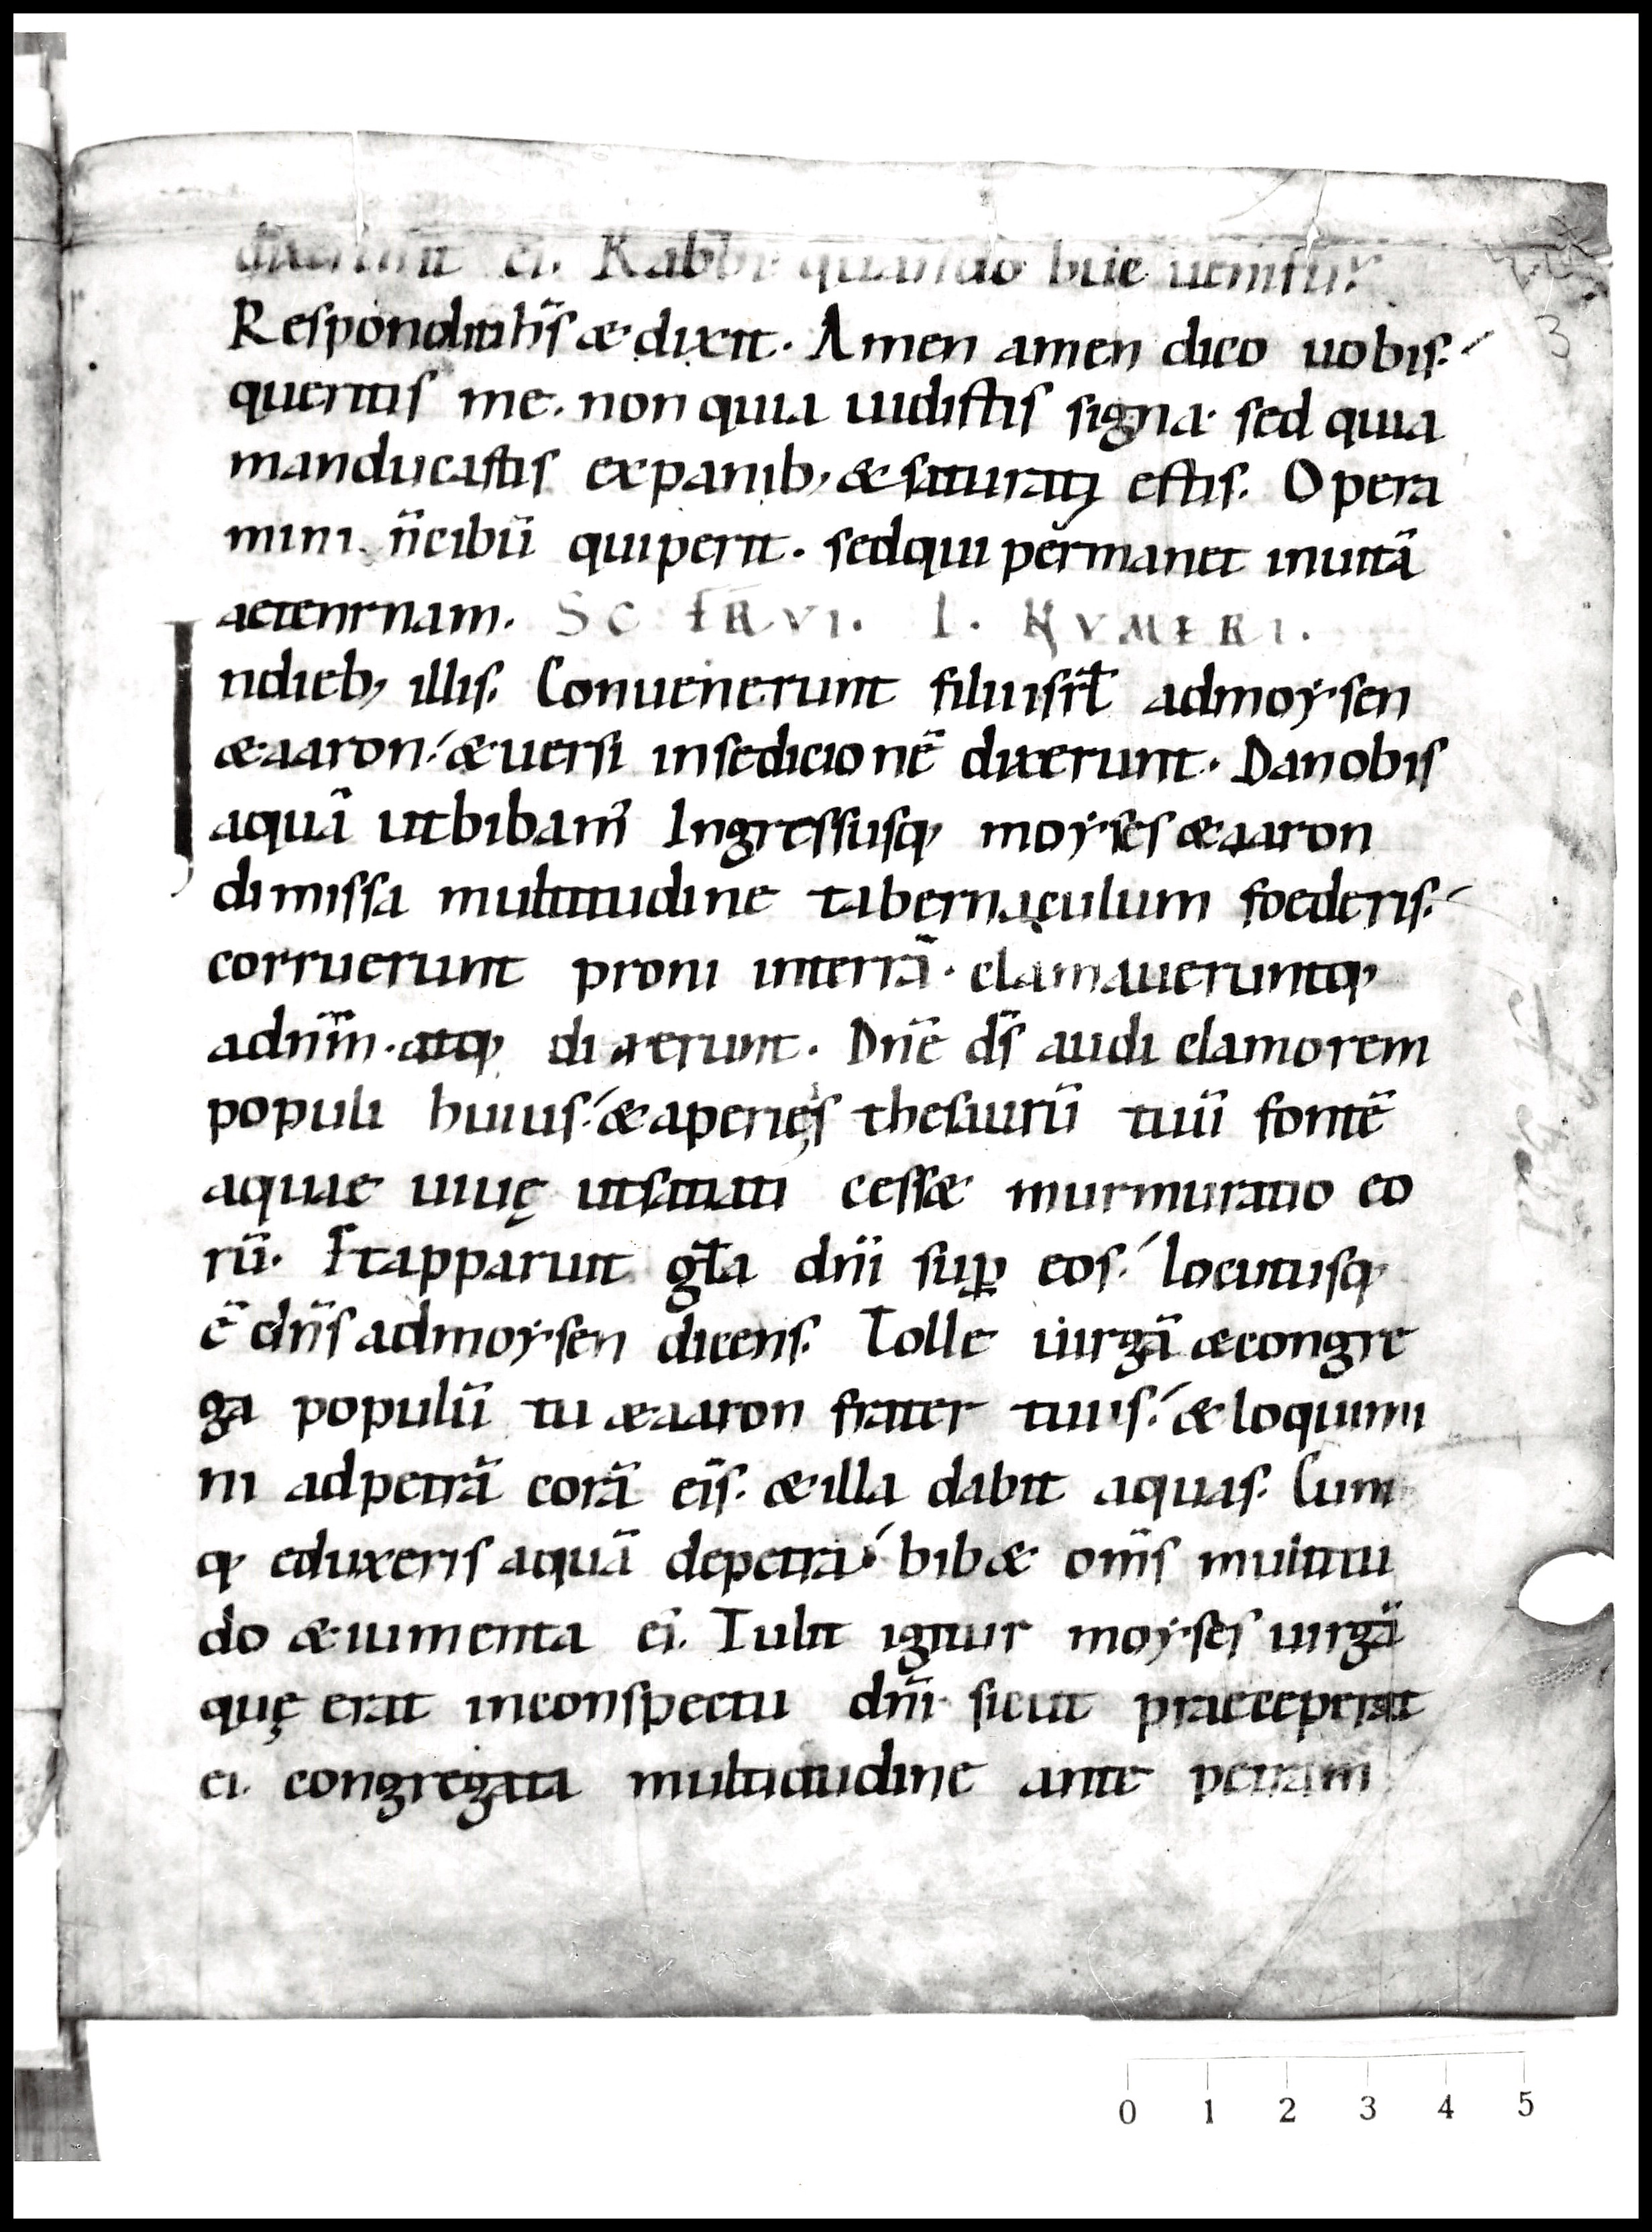 dixerunt ei. Rabbi quando huc uenisti?
Respondit ih̄s & dixit. Amen amen dico uobis.
queritis me. non quia uidistis signa sed quia
manducastis ex panib; & saturati estis. Opera
mini n̄ cibū qui perit. sed qui permanet in uitā
aetenrnam. SC FRVI. L. NVMERI.
Indieb; illis. Conuenerunt filii isrl̄ ad moysen
& aaron. & uersi in sedicionē dixerunt. Da nobis
aquā ut bibam̄ Ingressusq; moyses & aaron
dimissa multitudine tabernaculum foederis.
corruerunt proni in terrā. clamaueruntq;
ad dn̄m. atq; dixerunt. Dn̄e ds̄ audi clamorem
populi huius. & aperi eis thesaurū tuū fontē
aquae uiuę ut satiati cess& murmuratio eo
rū. Et apparuit gl̄a dn̄i sup̱ eos. locutusq;
ē dn̄s ad moysen dicens. Tolle uirgā & congre
ga populū tu & aaron frater tuus. & loquimi
ni ad petrā corā eis. & illa dabit aquas. Cum
q; eduxeris aquā de petra. bib& om̄s multitu
do & iumenta ei. Tulit igitur moyses uirgā
quę erat in conspectu dn̄i sicut praeceperat
ei. congregata multitudine ante petram
3
0 1 2 3 4 5